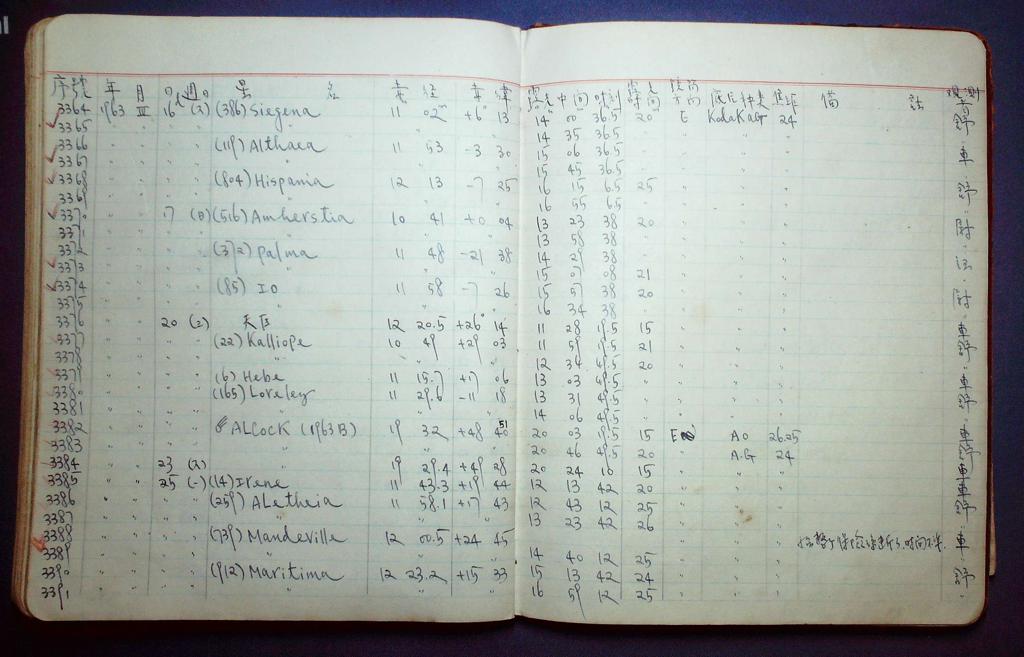 序號 年 月 日 週日 星 名 赤 經 赤 緯 露光中间时刻 露光时间 底片种类 焦距 備 註 观测者
3364 1963 III 16 (386) Siegena 11 02 +6° 13 14 00 36.5 20 E Kodak AG 24 舒
3365 " " " " " 14 35 36.5 "
3366 " " " " (119) Althaea 11 53 -3 30 15 06 36.5 " 車
3367 " " " " " 15 45 36.5 "
3368 " " " " (804) Hispania 12 13 -7 25 16 15 6.5 25 舒
3369 " " " " " 16 55 6.5 "
3370 " " 17 (日) (516) Amherstia 10 41 +0 04 13 23 38 20
3371 " " " " " 13 58 38 "
3372 " " " " (372) Palma 11 48 -21 38 14 29 38 "
3373 " " " " " 15 07 08 21
3374 " " " " (85) IO 11 58 -7 26 15 57 38 20
3375 " " " " " 16 34 38 "
3376 " " 20 (三) 天区 12 20.5 +26° 14 11 28 19.5 15 車
3377 " " " " (22) Kalliope 10 49 +29 03 11 59 19.5 21 舒
3378 " " " " " 12 34 49.5 20
3379 " " " " (6) Hebe 11 15.7 +17 06 13 03 49.5 " 車
3380 " " " " (165) Loreley 11 29.6 -11 18 13 31 49.5 " 舒
3381 " " " " " 14 06 49.5 "
3382 " " " " ALCOCK (1963B) 19 32 +48 51 20 03 19.5 15 E AO 26.25 車
3383 " " " " " 20 46 49.5 20 A.G 24 舒
3384 " " 23 (六) " 19 29.4 +49 28 20 24 10 15 車
3385 " " 25 (一) (14) Irene 11 43.3 +19 44 12 13 42 20 車
3386 " " " " (259) Aletheia 11 58.1 +17 43 12 43 12 25 舒
3387 " " " " " 13 23 42 26
3388 " " " " (739) Mandeville 12 00.5 +24 45 車
3389 " " " " " 14 40 12 25
3390 " " " " (912) Maritima 12 23.2 +15 33 15 13 42 24 舒
3391 " " " " " 16 59 12 25